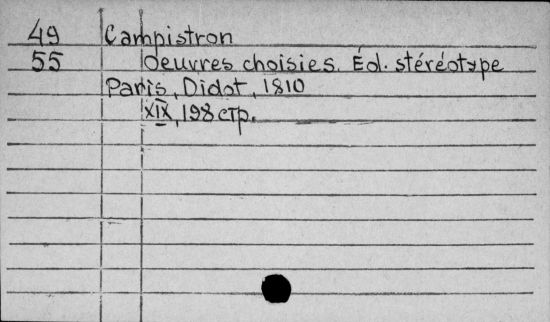 49 Campistron
55 Oeuvres choisies. Éd. stéréotype
Paris, Didot, 1810
XIX, 198 стр.